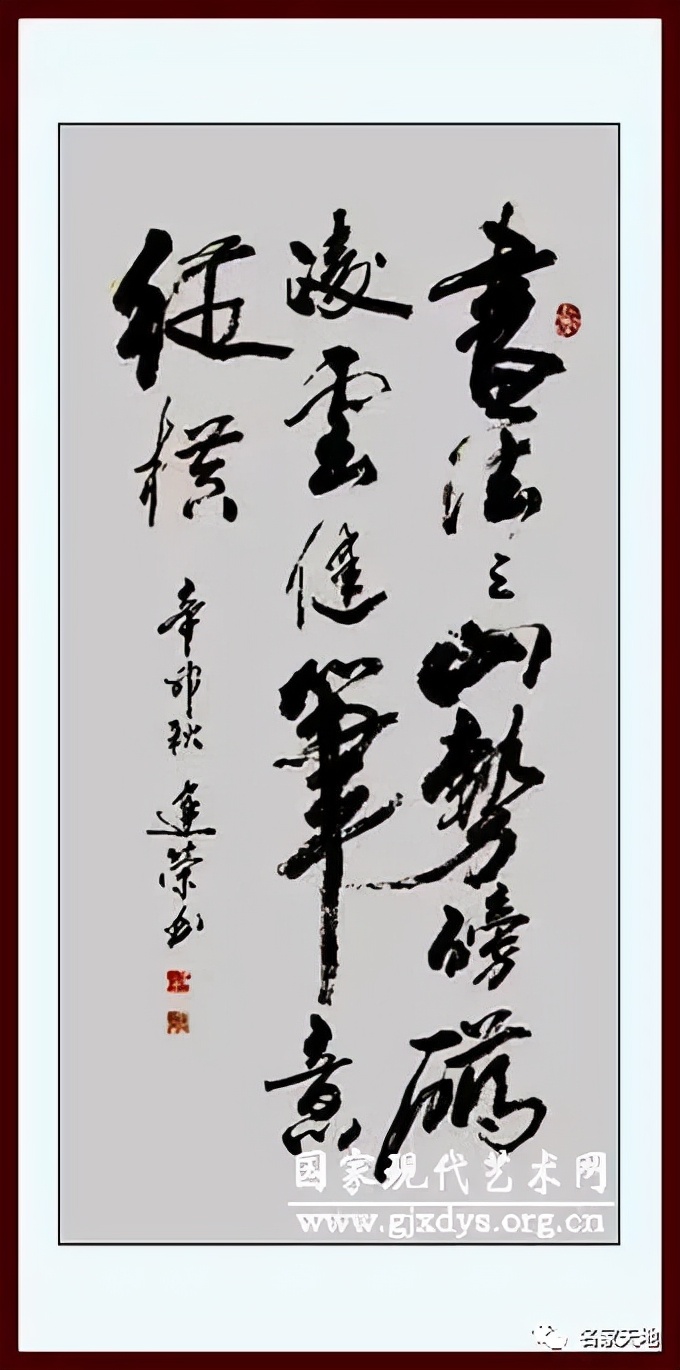 書法之山勢磅礴
凌雲健筆意
縱橫
辛卯秋 建榮书
国家现代艺术网
www.gjxdys.org.cn
名家天地